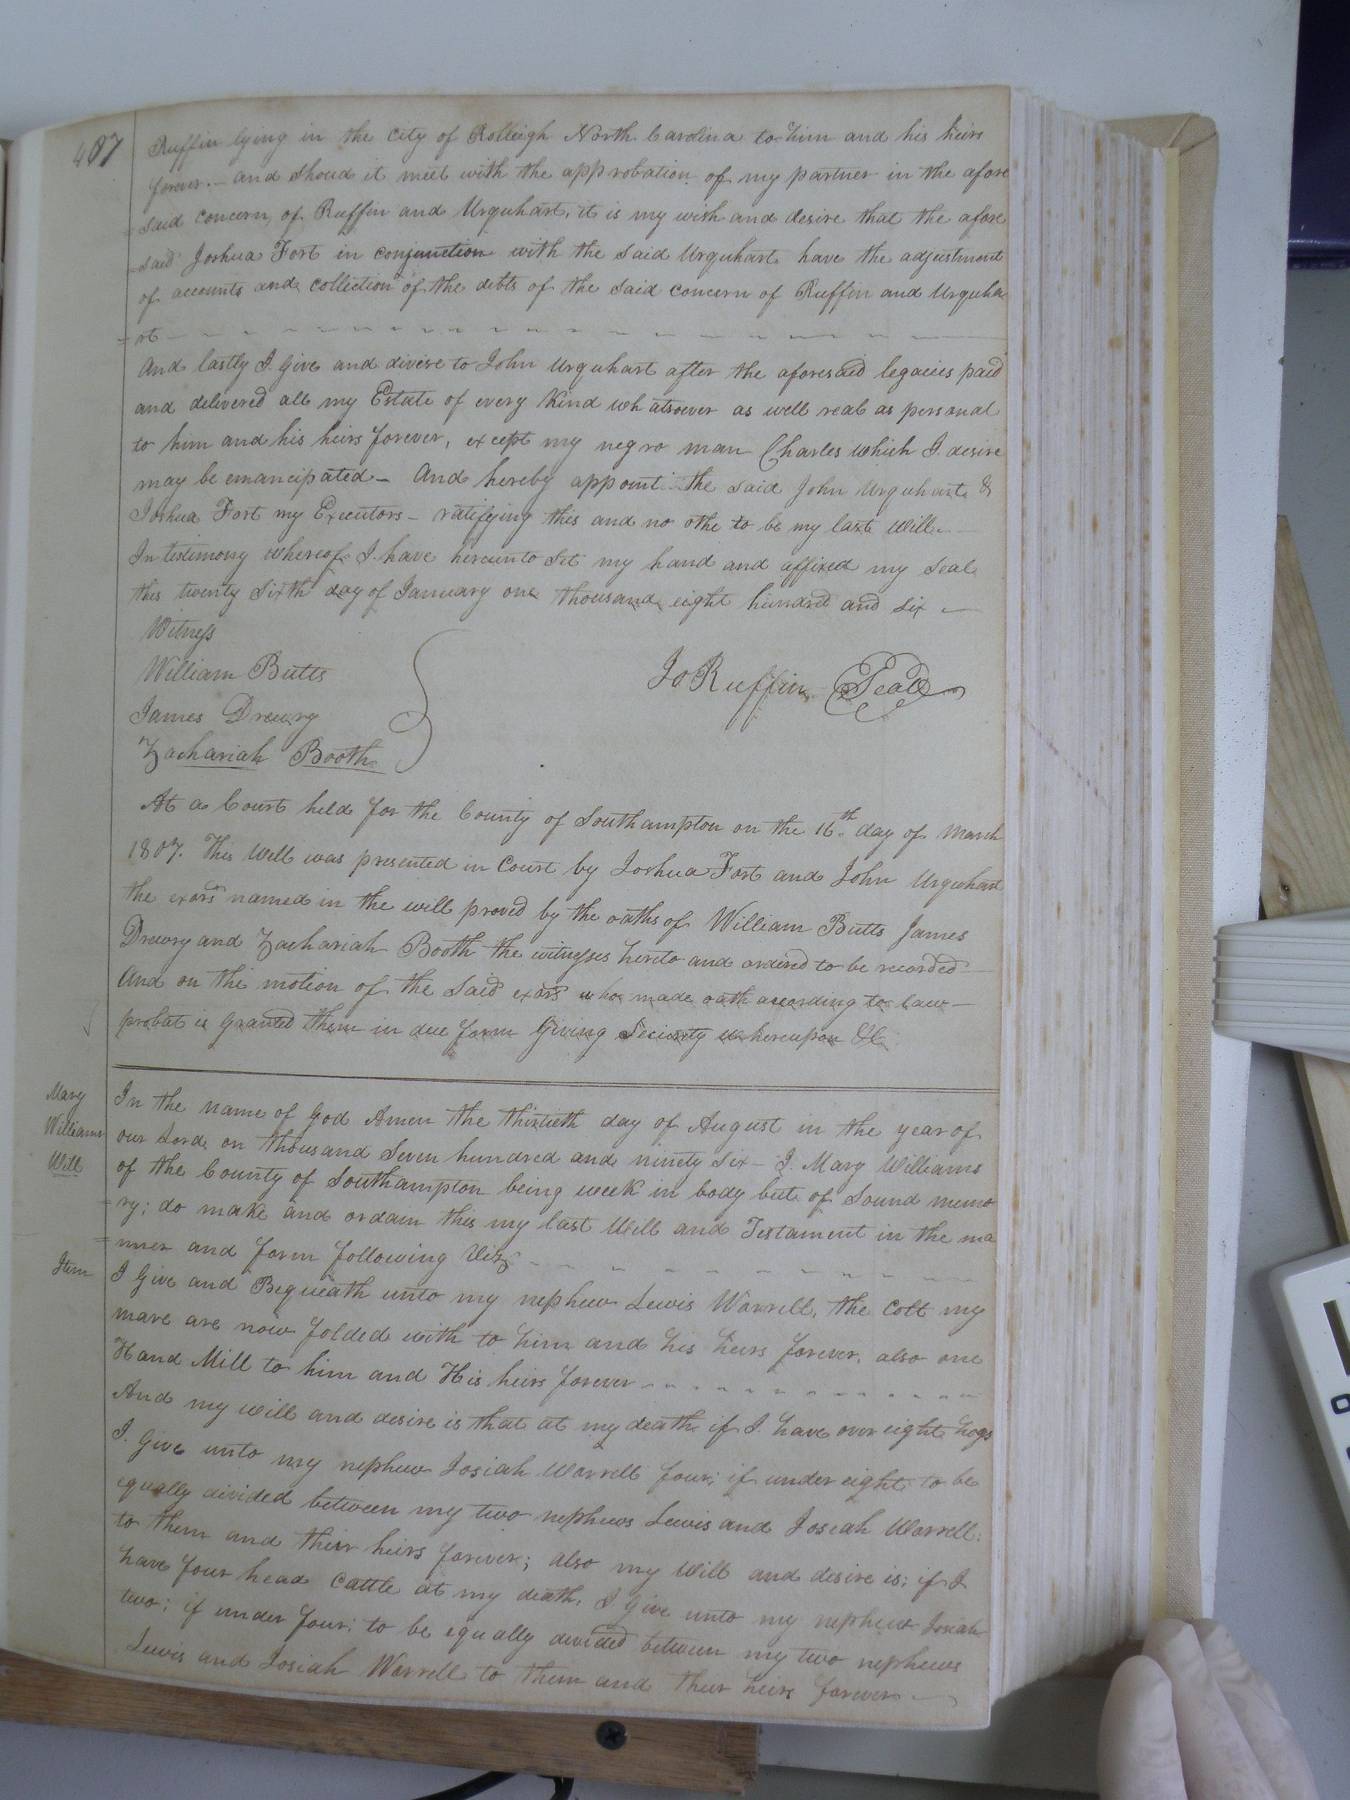 407
Ruffin lying in the City of Rolleigh North Carolina to him and his heirs
forever. – and Shoud it meet with the approbation of my partner in the afore
= said Concern, of Ruffin and Urquhart, it is my wish and desire that the afore
= said Joshua Fort in conjunction with the said Urquhart have the adjustment
of accounts and collection of the debts of the said concern of Ruffin and Urquha
= rt
And lastly I give and divise to John Urquhart after the aforesaid legacies paid
and delivered all my Estate of every Kind whatsoever as well real as personal
to him and his heirs forever, except my negro man Charles which I desire
may be emancipated – And hereby appoint the said John Urquhart &
Joshua Fort my Executors – ratifying this and no othe to be my last Will. –
In testimony whereof I have hereunto Set my hand and affixed my Seal
this twenty Sixth day of January one thousand eight hundred and Six –
Witness
William Butts
James Drewry
Zachariah Booth
Jo Ruffin Seal
At a Court held for the County of Southampton on the 16th day of March
1807. This Will was presented in Court by Joshua Fort and John Urquhart
the exors named in the will proved by the oaths of William Butts James
Drewry and Zachariah Booth the witnesses hereto and ordered to be recorded
And on the motion of the Said exors who made oath according to law –
probat is granted them in due form Giving Security whereupon &C
Mary
Williams
Will
In the name of God Amen the thirtieth day of August in the year of
our Lord on thousand Seven hundred and ninety Six – I Mary Williams
of the County of Southampton being week in body but of Sound memo
= ry; do make and ordain this my last Will and Testament in the ma
= nner and form following Viz
Item
I Give and Bequeath unto my nephew Lewis Worrell, the Colt my
mare are now folded with to him and his heirs forever, also one
Hand Mill to him and His heirs forever
And my will and desire is that at my death if I have over eight hogs
I Give unto my nephew Josiah Worrell four; if under eight to be
equally divided between my two nephews Lewis and Josiah Worrell:
to them and their heirs forever; also my Will and desire is; if I
have four head Cattle at my death, I Give unto my nephew Josiah
two; if under four; to be equally divided between my two nephews
Lewis and Josiah Worrell to them and their heirs forever –